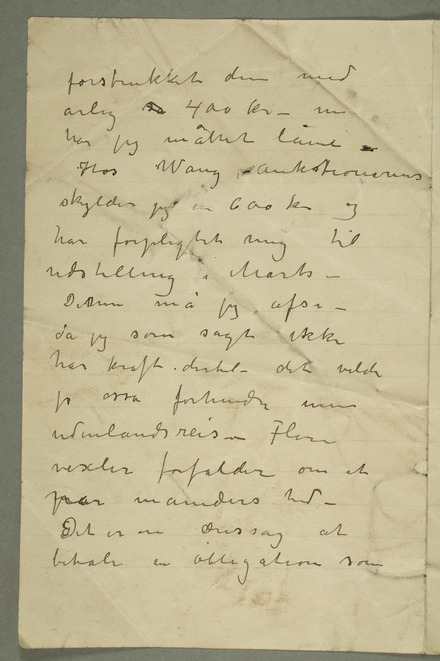 forstrukket dem med
årlig 400 kr – nu
har jeg måttet låne –
Hos Wang, auktionarius
skylder jeg en 600 kr og
har forpligtet mig til
udstilling i Marts –
Denne må jeg afse –
da jeg som sagt ikke
har kraft dertil – det vilde
jo også forhindre min
udenlandsreise – Flere
vexler forfalder om et
par måneders tid –
Det er en æressag at
betale en obligation som